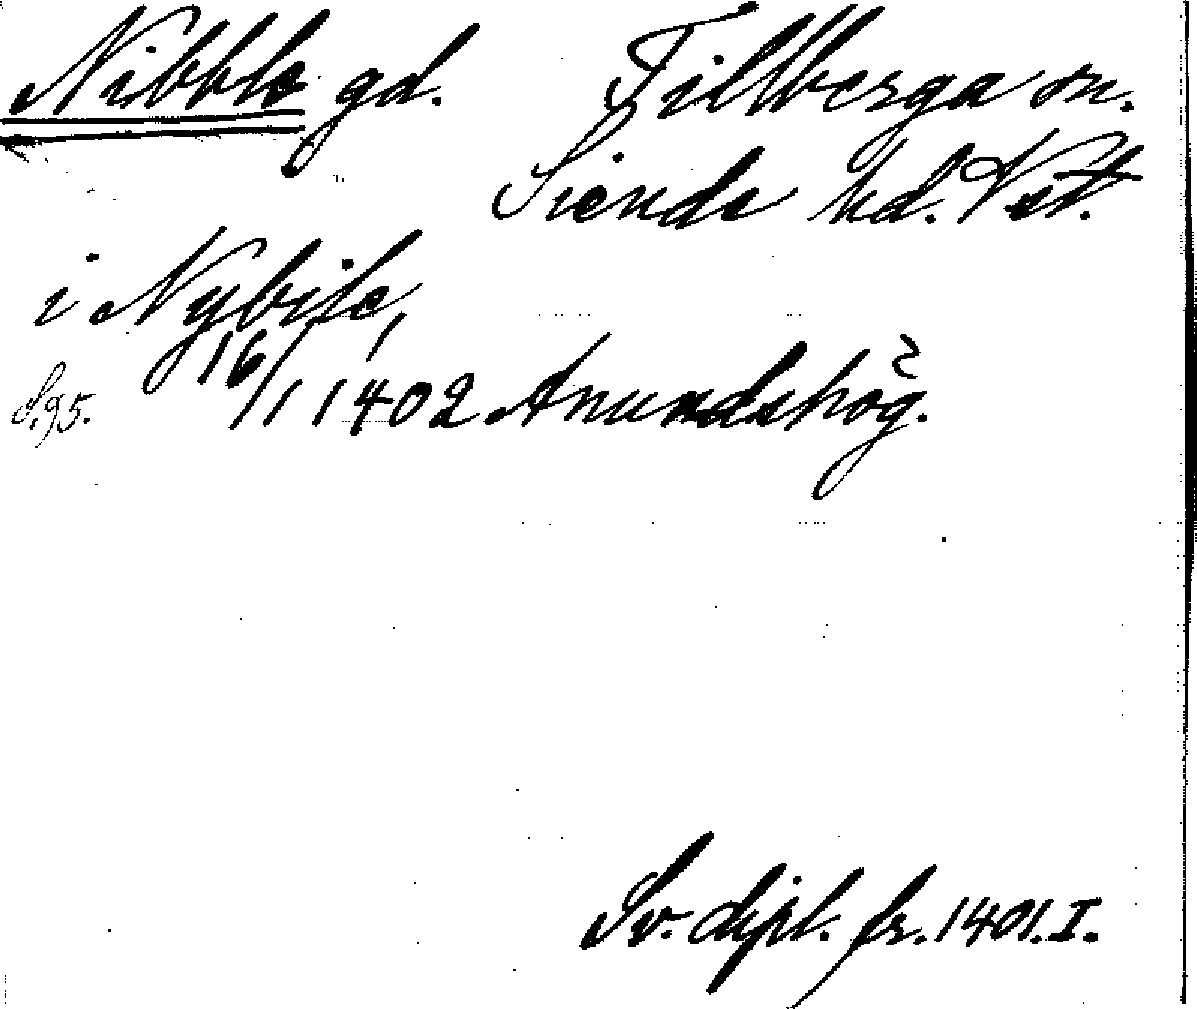 Nibble gd. Tillberga sn.
Siende hd. Vst.
i Nybile,
s. 95. 16/1 1402 Anundshög.
Sv. dipl. fr. 1401. I.